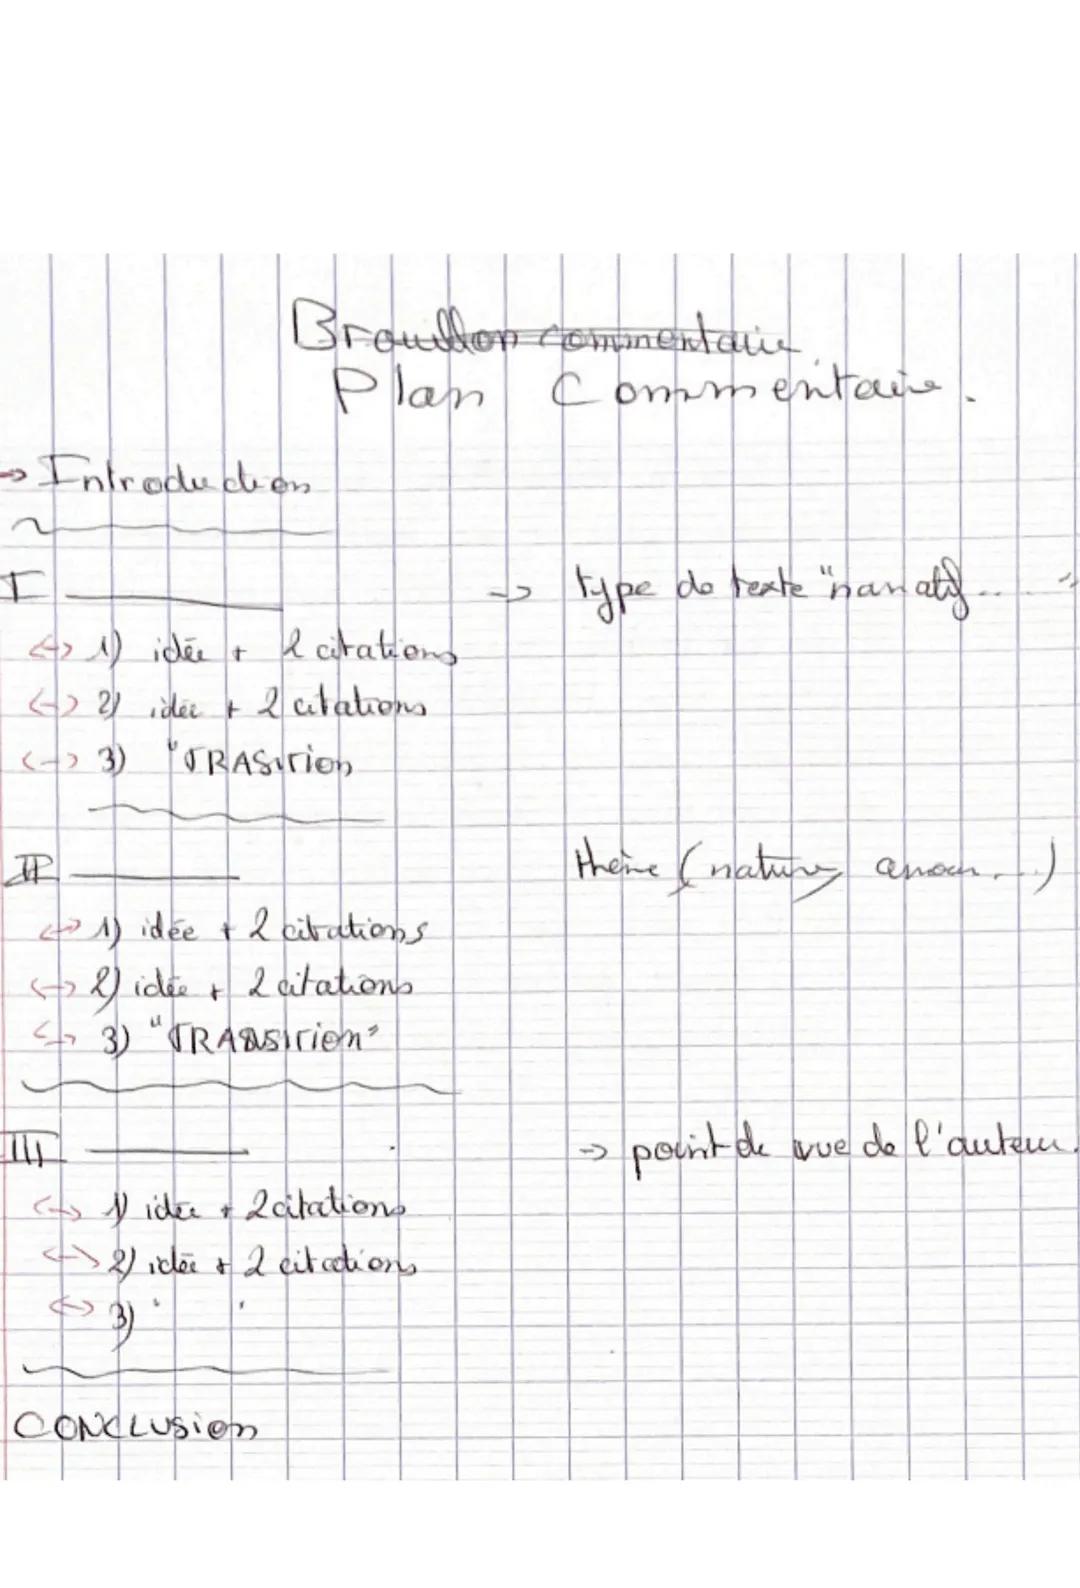 Brouillon commentaire
Plan Commentaire.
→ Introduction
I → type de texte "narratif.... "
↔ 1) idée + 2 citations
↔ 2) idée + 2 citations
↔ 3) "TRASITion
II thème (nature, amour...)
↔ 1) idée + 2 citations
↔ 2) idée + 2 citations
↔ 3) "TRANSITion"
III → point de vue de l'auteur.
↔ 1) idée + 2 citations
↔ 2) idée + 2 citations
↔ 3) " "
CONCLUSion